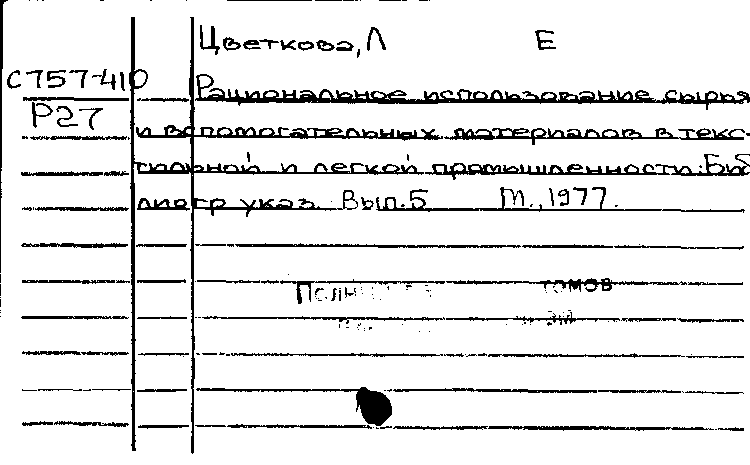 Цветкова, Л Е
С757-410
Рациональное использование сырья
Р27
и вспомогательных материалов в текс-
тильной и легкой промышленности: Биб
лиогр указ Вып. 5 М., 1977.
томов